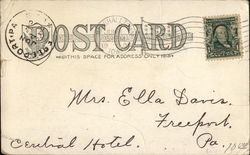 POST CARD
THIS SPACE FOR ADDRESS ONLY
Mrs. Ella Davis.
Freeport,
Central Hotel. Pa.